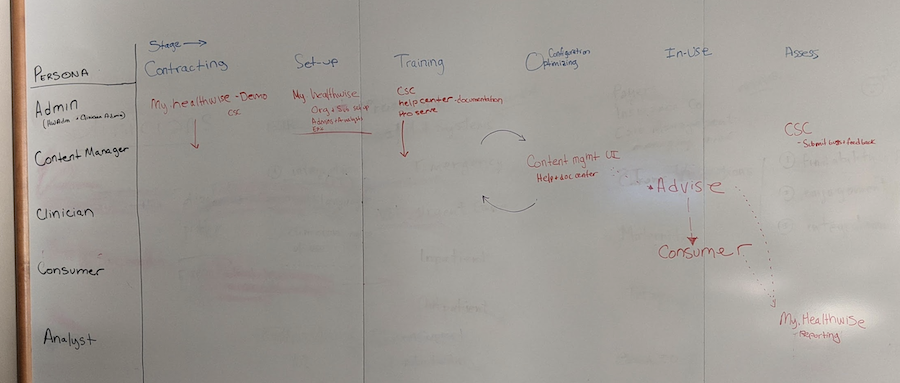 Stage →
Contracting
Set-up
Training
Configuration
Optimizing
In-Use
Assess
PERSONA
Admin
Content Manager
Clinician
Consumer
Analyst
My.healthwise - Demo
CSC
My healthwise
Org + SSO set up
CSC
help center - documentation
Pro serve
Content mgmt UI
Help + doc center
Advise
Consumer
CSC
- Submit bugs + feedback
My.Healthwise
- reporting